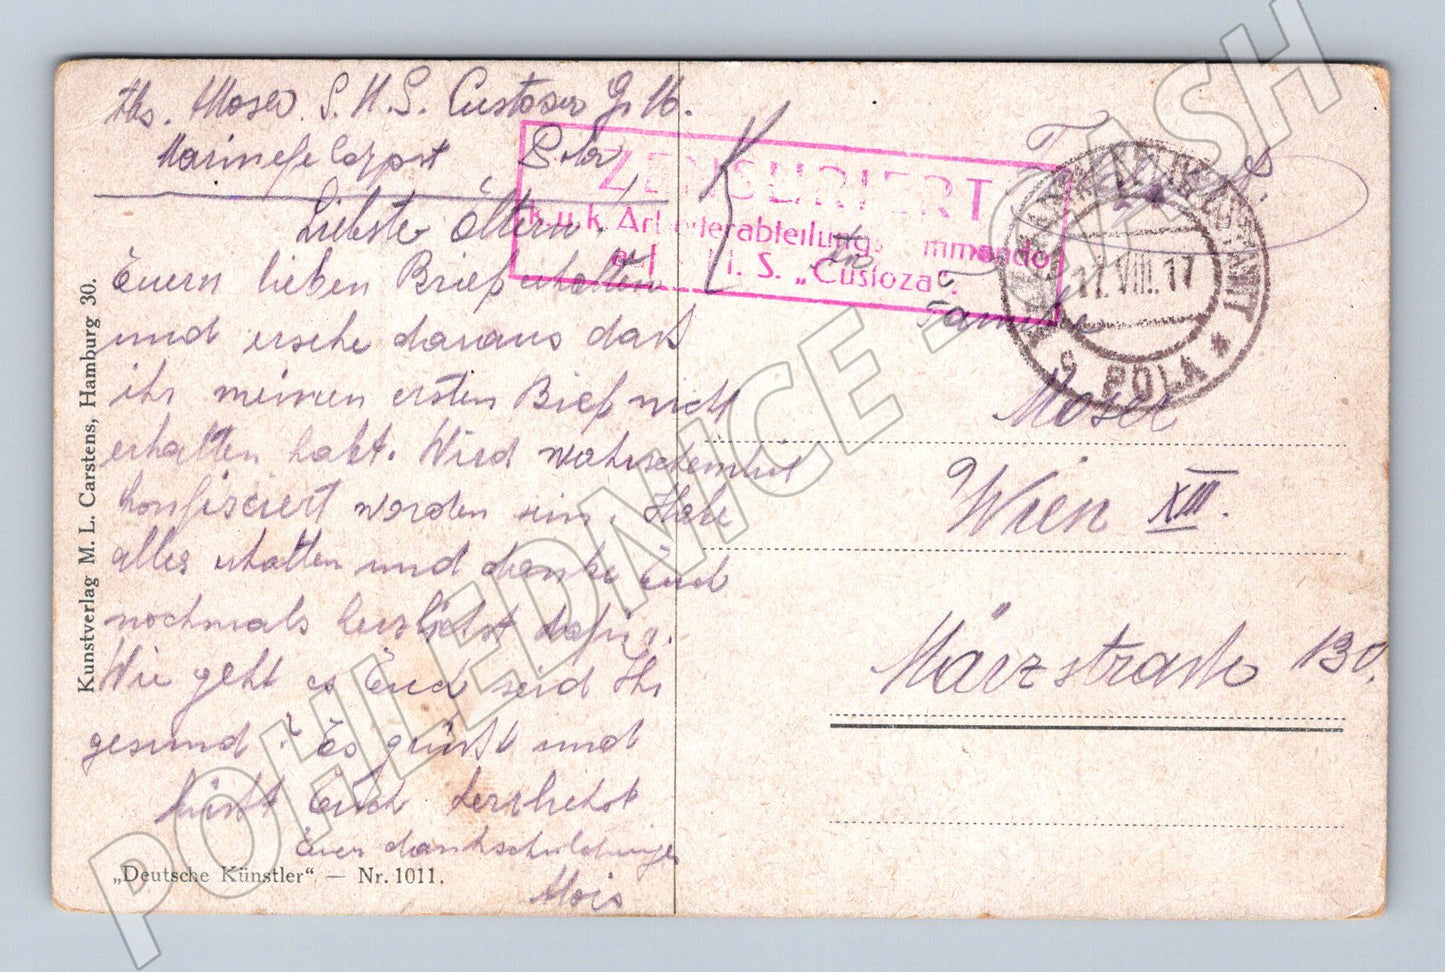 Als. Moser. S. M. S. Custoza G. M.
Marinefeldpost Pola
Liebste Eltern,
Euern lieben Brief erhalten
und ersehe daraus daß
ihr meinen ersten Brief nicht
erhalten habt. Wird wahrscheinlich
konfisciert worden sein. Habe
alles erhalten und danke Euch
nochmals herzlichst dafür.
Wie geht es Euch seid Ihr
gesund? Es grüßt und
küßt Euch herzlichst
Euer dankschuldiger
Alois
Kunstverlag M. L. Carstens, Hamburg 30.
„Deutsche Künstler“ — Nr. 1011.
ZENSURIERT
k. u. k. Arbeiterabteilungs mmando
auf S. „Custoza“.
17.VIII.17
c POLA *
Familie
Moser
Wien XIII.
Märzstraße 130.
POHLEDNICE - CASH